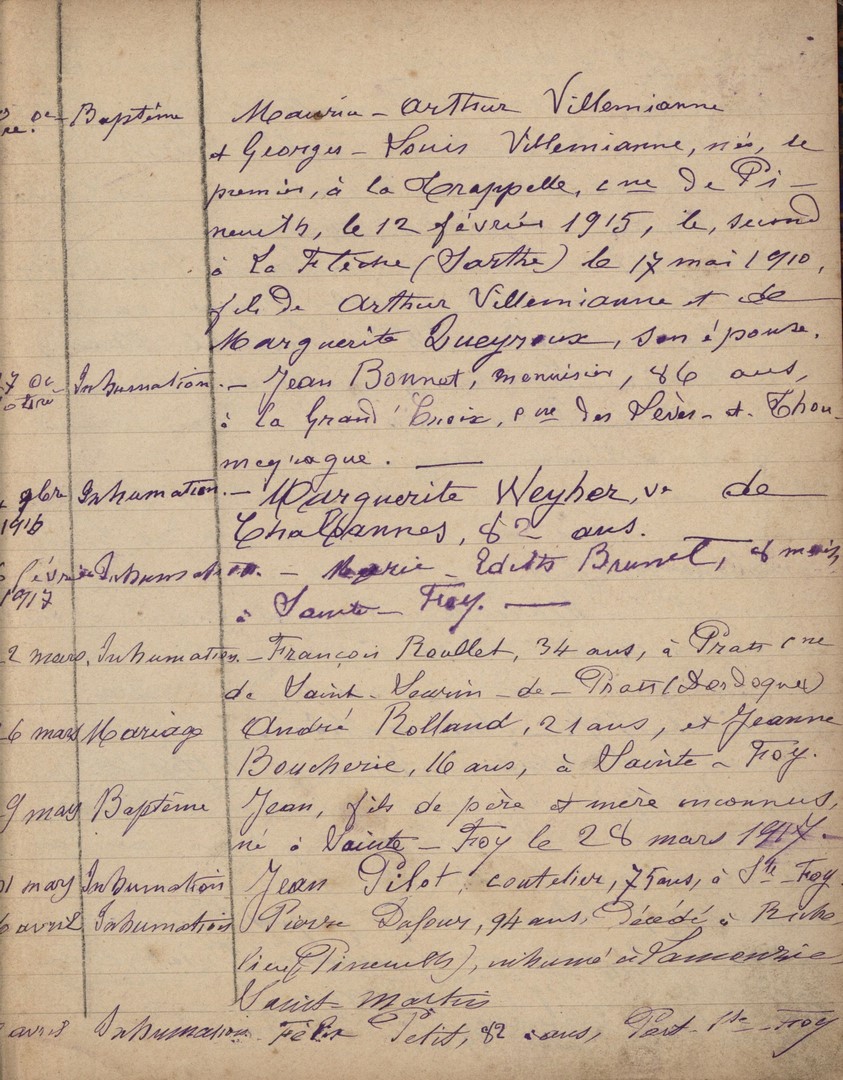 Baptême Maurice - Arthur Villemianne
et Georges - Louis Villemianne, nés, le
premier, à la Trappelle, cne de Pi-
neuilh, le 12 février 1915, le, second
à La Flèche (Sarthe) le 17 mai 1910,
fils de Arthur Villemianne et de
Marguerite Queyroux, son épouse.
Inhumation. - Jean Bonnet, menuisier, 86 ans,
à la Grand' Croix, cne des Lèves - et - Thou-
meyragues. —
Inhumation. - Marguerite Weyher, ve de
1916 82 ans.
Inhumation. - Marie - Edith Brunet, 8 mois
1917 à Sainte - Foy. —
2 mars. Inhumation. - François Roullet, 34 ans, à Prats cne
de Saint - Seurin - de - Prats (Dordogne)
6 mars Mariage André Rolland, 21 ans, et Jeanne
Boucherie, 16 ans, à Sainte - Foy.
9 mars Baptême Jean, fils de père et mère inconnus,
né à Sainte - Foy le 28 mars 1917. -
1 mars Inhumation Jean Pilot, coutelier, 75 ans, à Ste - Foy.
6 avril Inhumation Pierre Dufour, 94 ans, décédé à Riche
lieu (Pineuilh), inhumé à
Saint - Martin
avril Inhumation. Félix Petit, 82 ans, Port - Ste - Foy